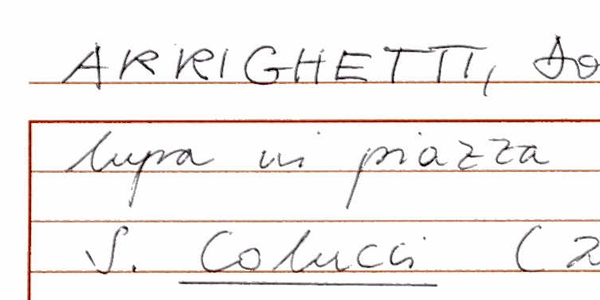 ARRIGHETTI,
lupa in piazza
S. Colucci (2